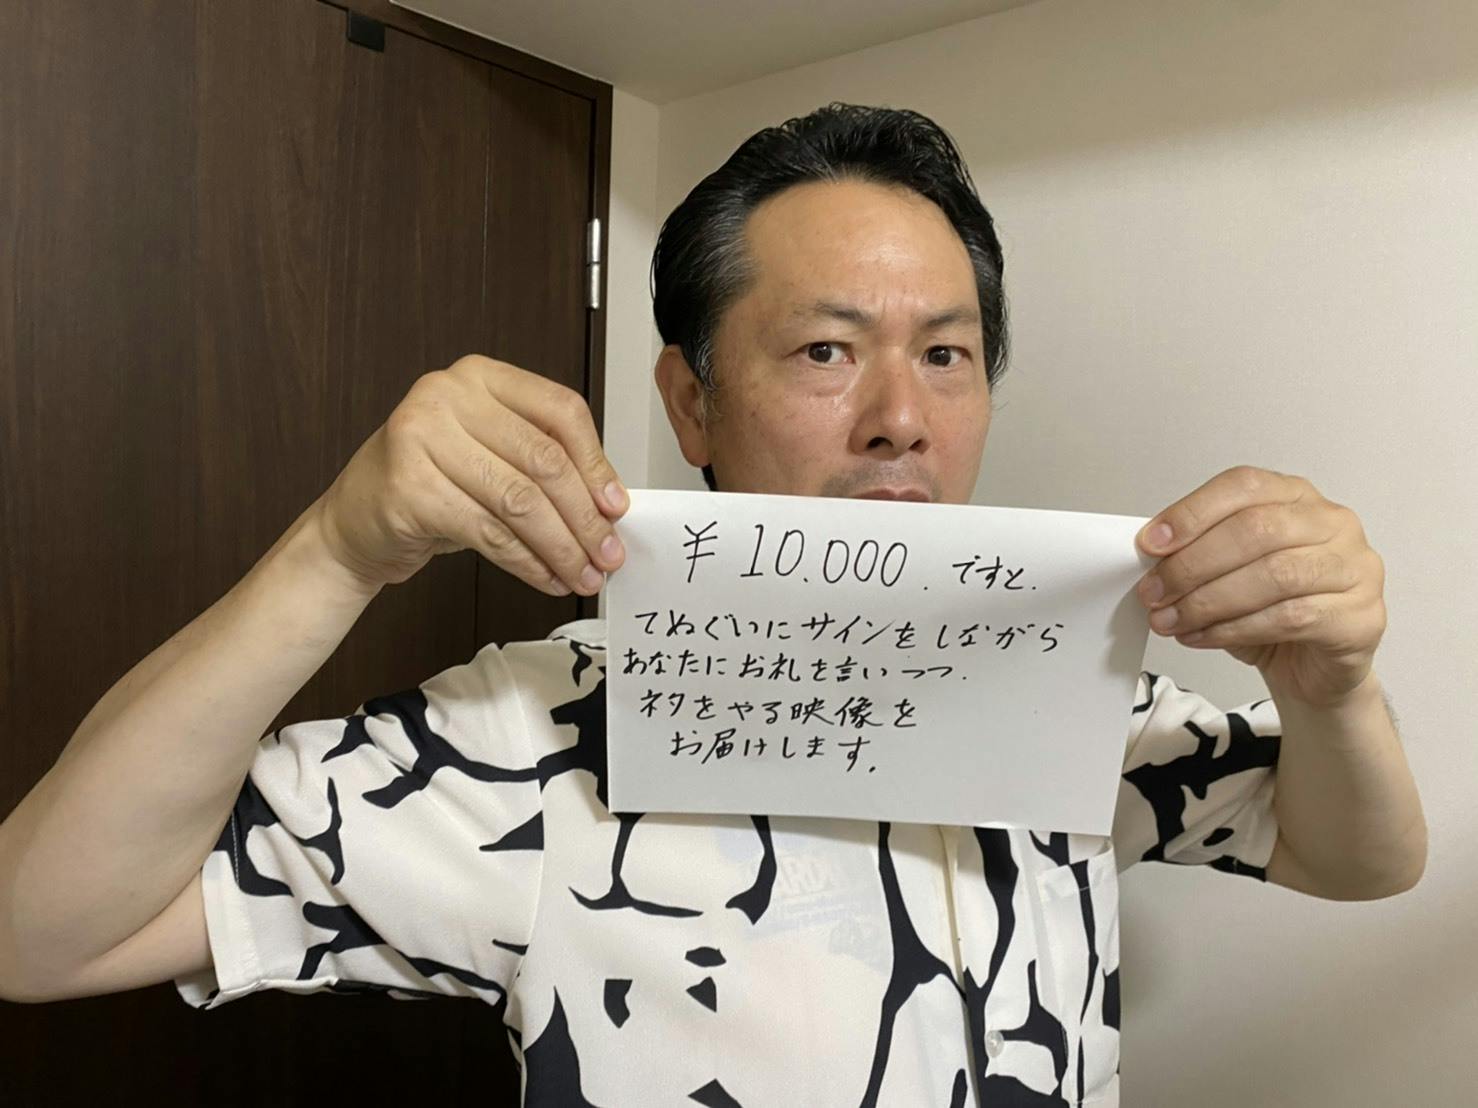 ¥10.000.ですと.
てぬぐいにサインをしながら
あなたにお礼を言いつつ.
ネタをやる映像を
お届けします.